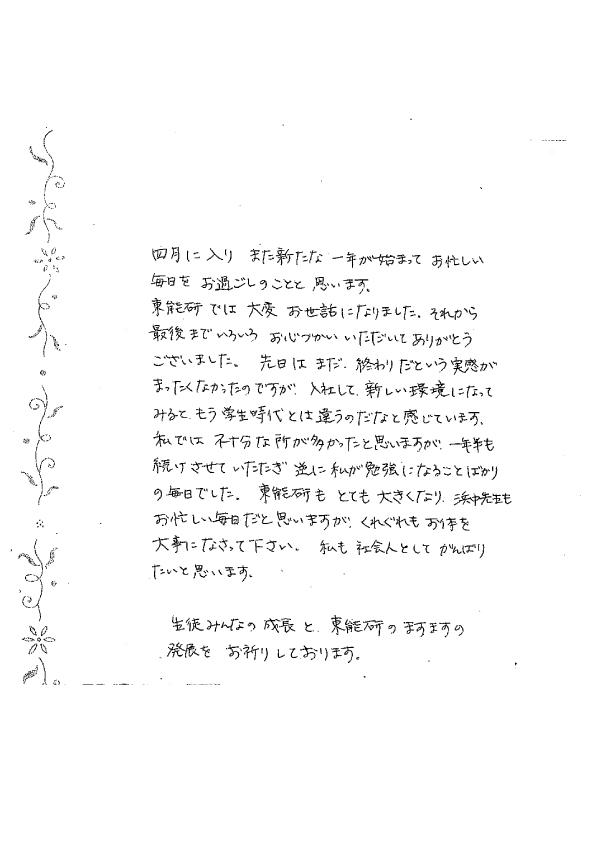 四月に入り また新たな 一年が始まって お忙しい
毎日を お過ごしのことと 思います。
東能研では 大変 お世話になりました。それから
最後まで いろいろ お心づかい いただいて ありがとう
ございました。 先日は まだ、終わりだという 実感が
まったくなかったのですが、入社して、新しい環境になって
みると、もう学生時代とは違うのだなと感じています。
私では 不十分な所が多かったと思いますが、一年半も
続けさせていただき 逆に私が勉強になることばかり
の毎日でした。 東能研も とても 大きくなり、浜中先生も
お忙しい毎日だと思いますが、くれぐれも お体を
大事になさって下さい。 私も 社会人として がんばり
たいと思います。
生徒みんなの成長と、東能研のますますの
発展を お祈りしております。